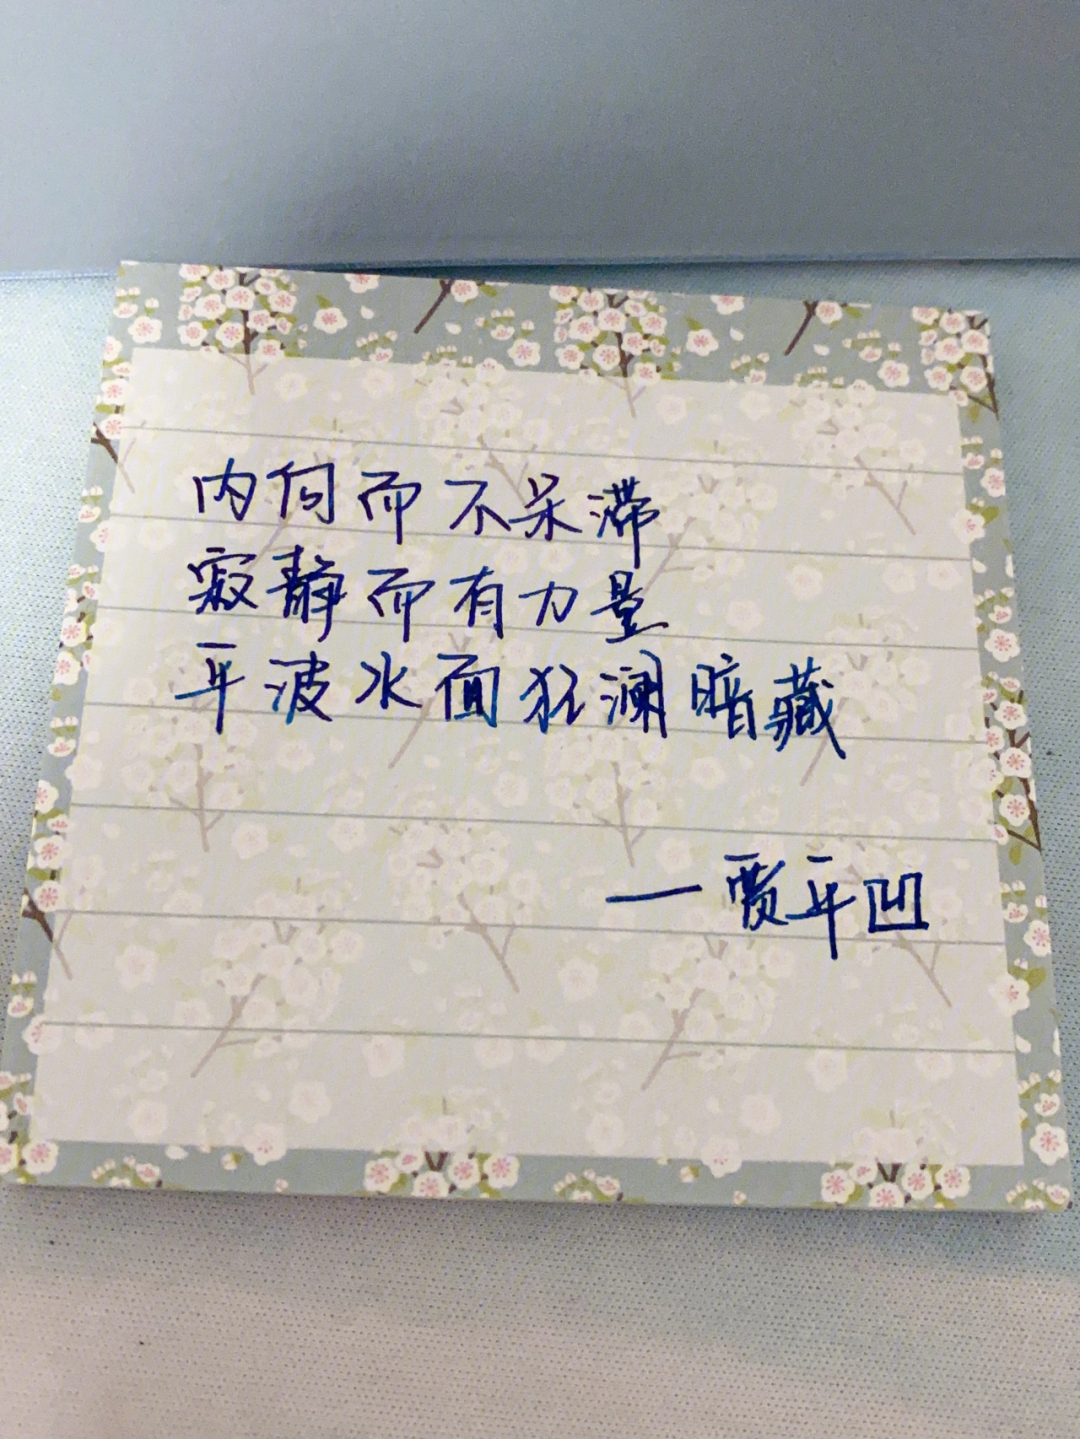 内向而不呆滞
寂静而有力量
平波水面狂澜暗藏
—贾平凹